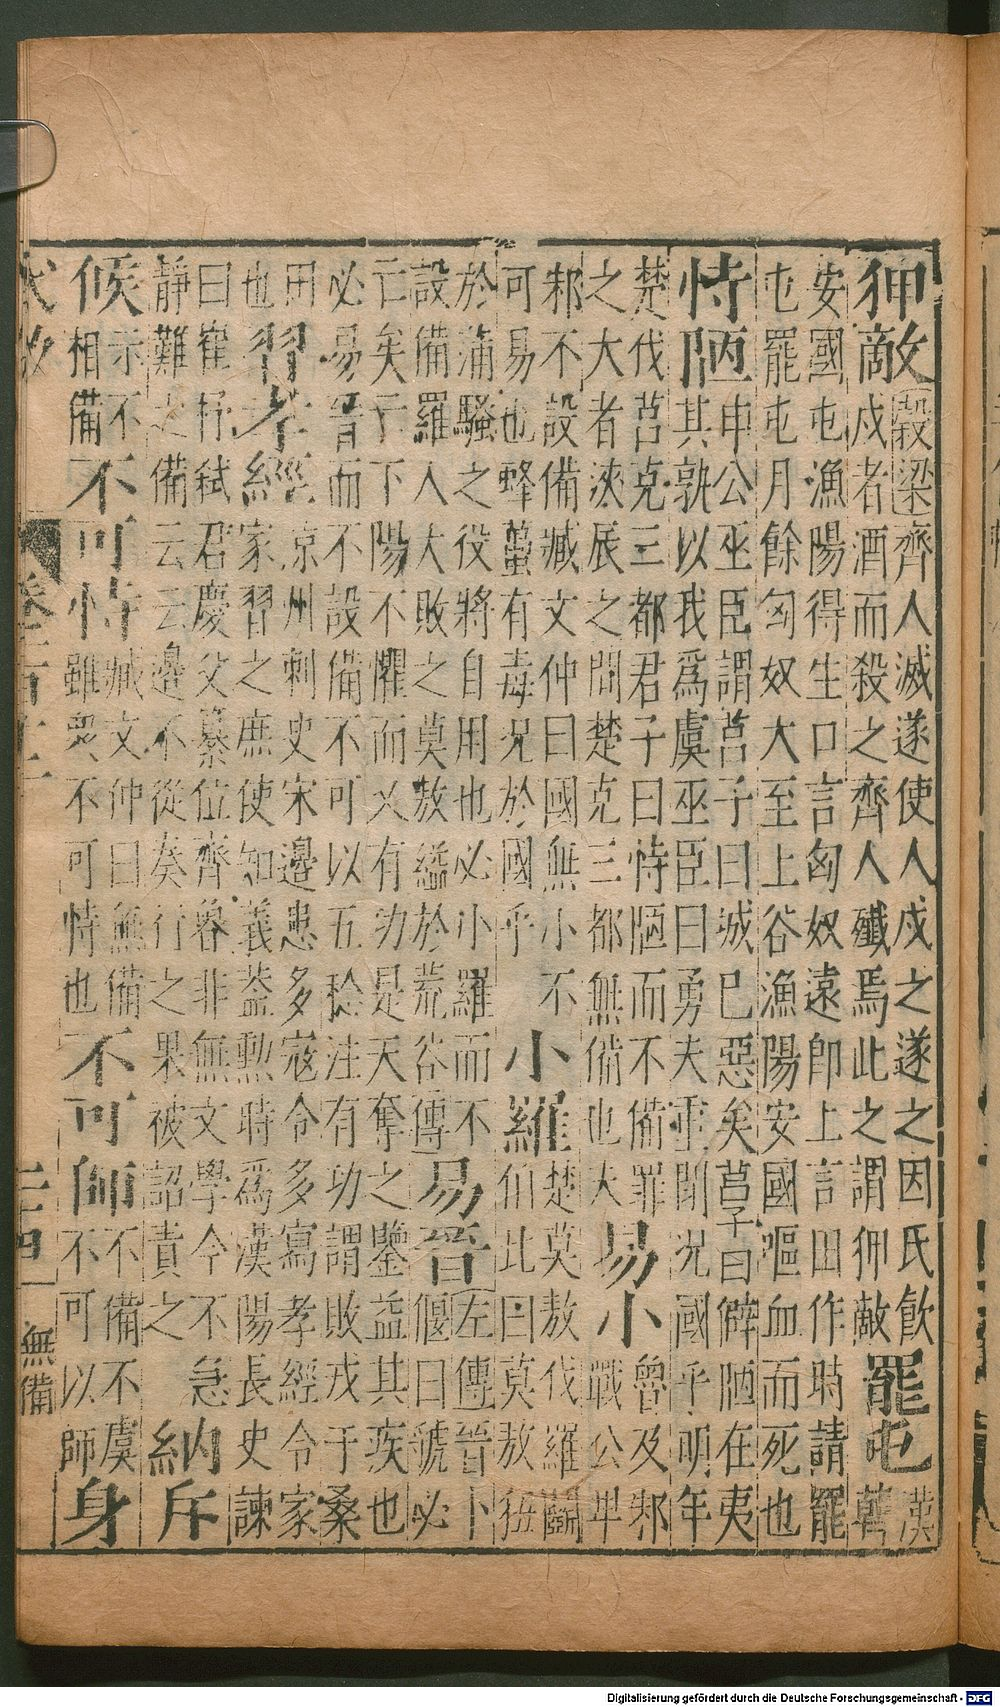 狎敵 穀梁齊人滅遂使人戍之遂之因氏飲
戍者酒而殺之齊人殲焉此之謂狎敵 罷屯 漢韓
安國屯漁陽得生口言匈奴遠即上言田作時請罷
屯罷屯月餘匈奴大至上谷漁陽安國嘔血而死也
恃陋 申公巫臣謂莒子曰城已惡矣莒子曰僻陋在夷
其孰以我爲虞巫臣曰勇夫重閉況國乎明年
楚伐莒克三都君子曰恃陋而不備罪
之大者浹辰之間楚克三都無備也夫 易小 魯及邾戰公卑
邾不設備臧文仲曰國無小不
可易也蜂蠆有毒況於國乎 小羅 楚莫敖伐羅鬬伯比曰莫敖狃
於蒲騷之役將自用也必小羅而不
設備羅人大敗之莫敖縊於荒谷傳 易晉 左傳晉卜偃曰虢必
亡矣亡下陽不懼而又有功是天奪之鑒益其疾也
必易晉而不設備不可以五稔注有功謂敗戎于桑
田也 習孝經 涼州刺史宋邊患多寇令多寫孝經令家
家習之庶使知義葢勲時爲漢陽長史諫
曰崔杼弒君慶父簒位齊魯非無文學今不急
靜難之備云云邊不從奏行之果被詔責之 納斥
候 示不相備 不可恃 臧文仲曰無備雖衆不可恃也 不可師 不備不虞不可以師 身
卷二百十二
二十四
無備
Digitalisierung gefördert durch die Deutsche Forschungsgemeinschaft - DFG